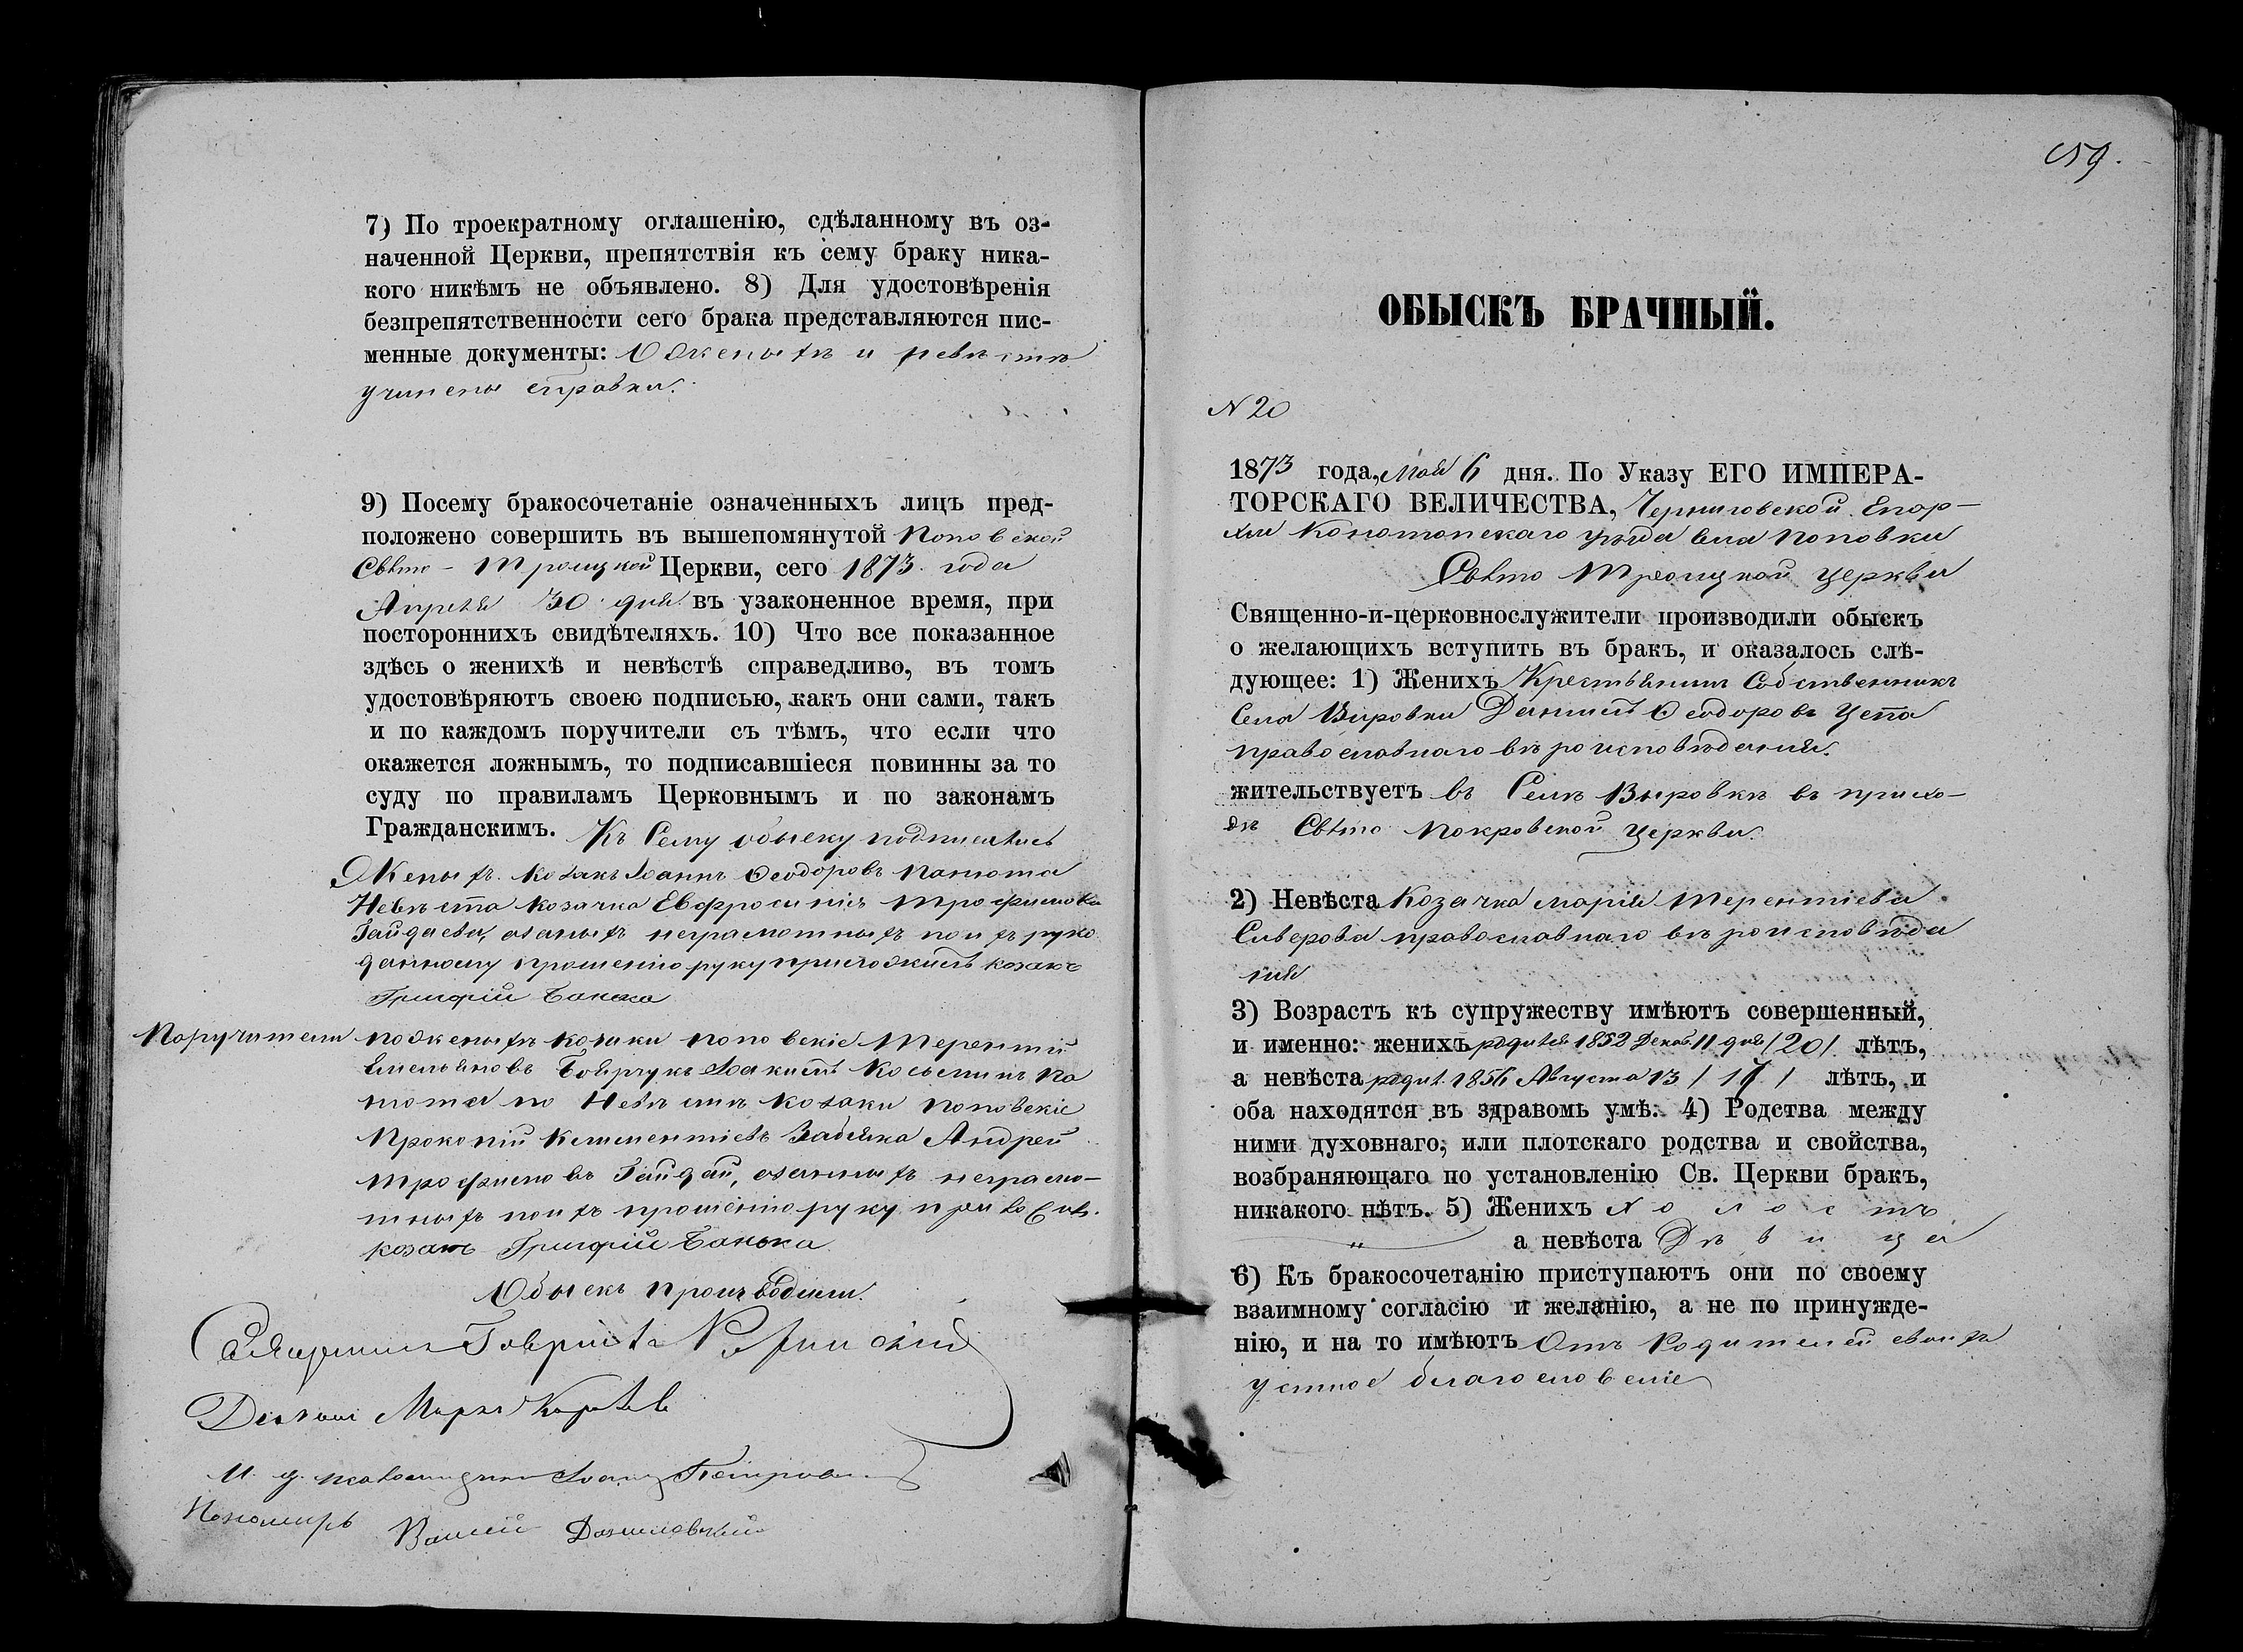 7) По троекратному оглашенію, сдѣланному въ оз-
наченной Церкви, препятствія къ сему браку ника-
кого никѣмъ не объявлено. 8) Для удостовѣренія
безпрепятственности сего брака представляются пис-
менные документы: О женихѣ и невѣстѣ
учинены справки.
9) Посему бракосочетаніе означенныхъ лицъ пред-
положено совершить въ вышепомянутой Поповской
Свято-Троицкой Церкви, сего 1873 года
Апрѣля 30 дня въ узаконенное время, при
постороннихъ свидѣтеляхъ. 10) Что все показанное
здѣсь о женихѣ и невѣстѣ справедливо, въ томъ
удостовѣряютъ своею подписью, какъ они сами, такъ
и по каждомъ поручители съ тѣмъ, что если что
окажется ложнымъ, то подписавшіеся повинны за то
суду по правиламъ Церковнымъ и по законамъ
Гражданскимъ. Къ Сему обыску подписались
Женихъ козакъ Іоаннъ Ѳеодоровъ Панюта
Невѣста козачка Евфросинія Трофимова
Гайдаева, а за ихъ неграмотныхъ по ихъ руко
данному прошенію руку приложилъ козакъ
Григорій Банька
Поручители по женихѣ козаки поповскіе Терентій
Емельяновъ Боярчукъ Іоакимъ Косьминъ Па
нюта по Невѣстѣ козаки поповскіе
Прокопій Климентіевъ Забѣяка Андрей
Трофимовъ Гайдай, а за нихъ неграмо-
тныхъ по ихъ прошенію руку приложилъ
козакъ Григорій Банька
Обыскъ производили.
Священникъ Гавріилъ
Діаконъ Маркъ Королев
И. д. псаломщика Іоаннъ Петровскій
Пономарь Василій Даниловскій
159.
ОБЫСКЪ БРАЧНЫЙ.
N 20
1873 года, Мая 6 дня. По Указу ЕГО ИМПЕРА-
ТОРСКАГО ВЕЛИЧЕСТВА, Черниговской Епар-
хіи Конотопскаго уѣзда села Поповки
Свято Троицкой церкви
Священно-и-церковнослужители производили обыскъ
о желающихъ вступить въ бракъ, и оказалось слѣ-
дующее: 1) Женихъ Крестьянинъ Собственникъ
Села Вировки Даніилъ Ѳеодоровъ Цепа
православнаго вѣроисповѣданія.
жительствуетъ въ Селѣ Выровкѣ въ прихо-
дѣ Свято Покровской церкви.
2) Невѣста Козачка Марія Терентіева
Сиверова православнаго вѣроисповѣда
нія
3) Возрастъ къ супружеству имѣютъ совершенный,
и именно: женихъ родился 1852 Декаб. 11 дня /20/ лѣтъ,
а невѣста родил. 1856 Августа 13 / 17 / лѣтъ, и
оба находятся въ здравомъ умѣ. 4) Родства между
ними духовнаго, или плотскаго родства и свойства,
возбраняющаго по установленію Св. Церкви бракъ,
никакого нѣтъ. 5) Женихъ Холостъ
" а невѣста Дѣвица
6) Къ бракосочетанію приступаютъ они по своему
взаимному согласію и желанію, а не по принужде-
нію, и на то имѣютъ Отъ Родителей своихъ
устное благословеніе